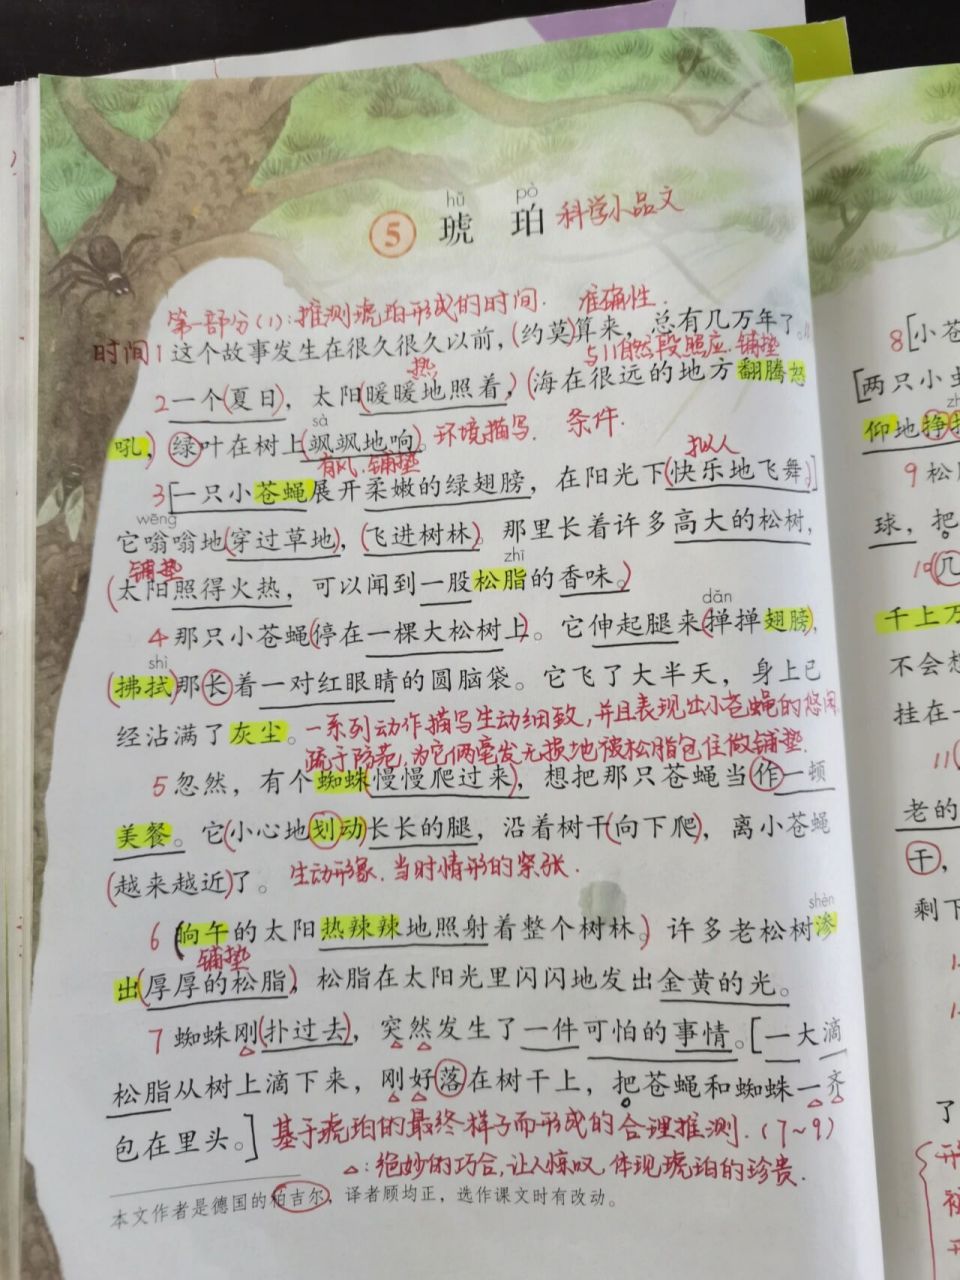 hǔ pò
5 琥 珀 科学小品文
第一部分(1):推测琥珀形成的时间. 准确性.
时间1 这个故事发生在很久很久以前,(约莫)算来,总有几万年了。
热 与11自然段照应.铺垫
2 一个(夏日),太阳(暖暖地照着,)(海在很远的地方翻腾怒
sà
吼,)绿叶在树上(飒飒地响)。环境描写. 条件.
有风.铺垫 拟人
3[一只小苍蝇展开柔嫩的绿翅膀,在阳光下(快乐地飞舞。)]
wēng
它嗡嗡地(穿过草地),(飞进树林)。那里长着许多高大的松树,
铺垫 zhī
(太阳照得火热,可以闻到一股松脂的香味。)
dǎn
4 那只小苍蝇(停在一棵大松树上)。它伸起腿来(掸掸翅膀),
shì
(拂拭)那长着一对红眼睛的圆脑袋。它飞了大半天,身上已
经沾满了灰尘。一系列动作描写生动细致,并且表现出小苍蝇的悠闲,
疏于防范,为它俩毫发无损地被松脂包住做铺垫.
5 忽然,有个蜘蛛(慢慢爬过来),想把那只苍蝇当作一顿
美餐。它(小心地划动)长长的腿,沿着树干(向下爬),离小苍蝇
(越来越近)了。 生动形象.当时情形的紧张.
shèn
6(晌午的太阳热辣辣地照射着整个树林。)许多老松树渗
铺垫
出(厚厚的松脂),松脂在太阳光里闪闪地发出金黄的光。
7 蜘蛛刚(扑过去),突然发生了一件可怕的事情。[一大滴
松脂从树上滴下来,刚好落在树干上,把苍蝇和蜘蛛一齐
包在里头。] 基于琥珀的最终样子而形成的合理推测.(7~9)
△:绝妙的巧合,让人惊叹,体现琥珀的珍贵.
本文作者是德国的柏吉尔,译者顾均正,选作课文时有改动。
8[小苍
[两只小虫
zh
仰地挣扎
9 松脂
球,把
10 几
千上万
不会想
挂在一
11
老的
干,
剩下
了